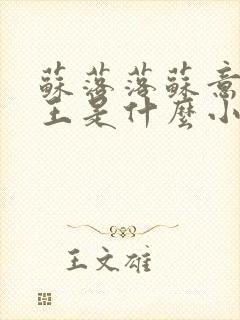 蘇落落蘇意
王是什麼小
王文雄